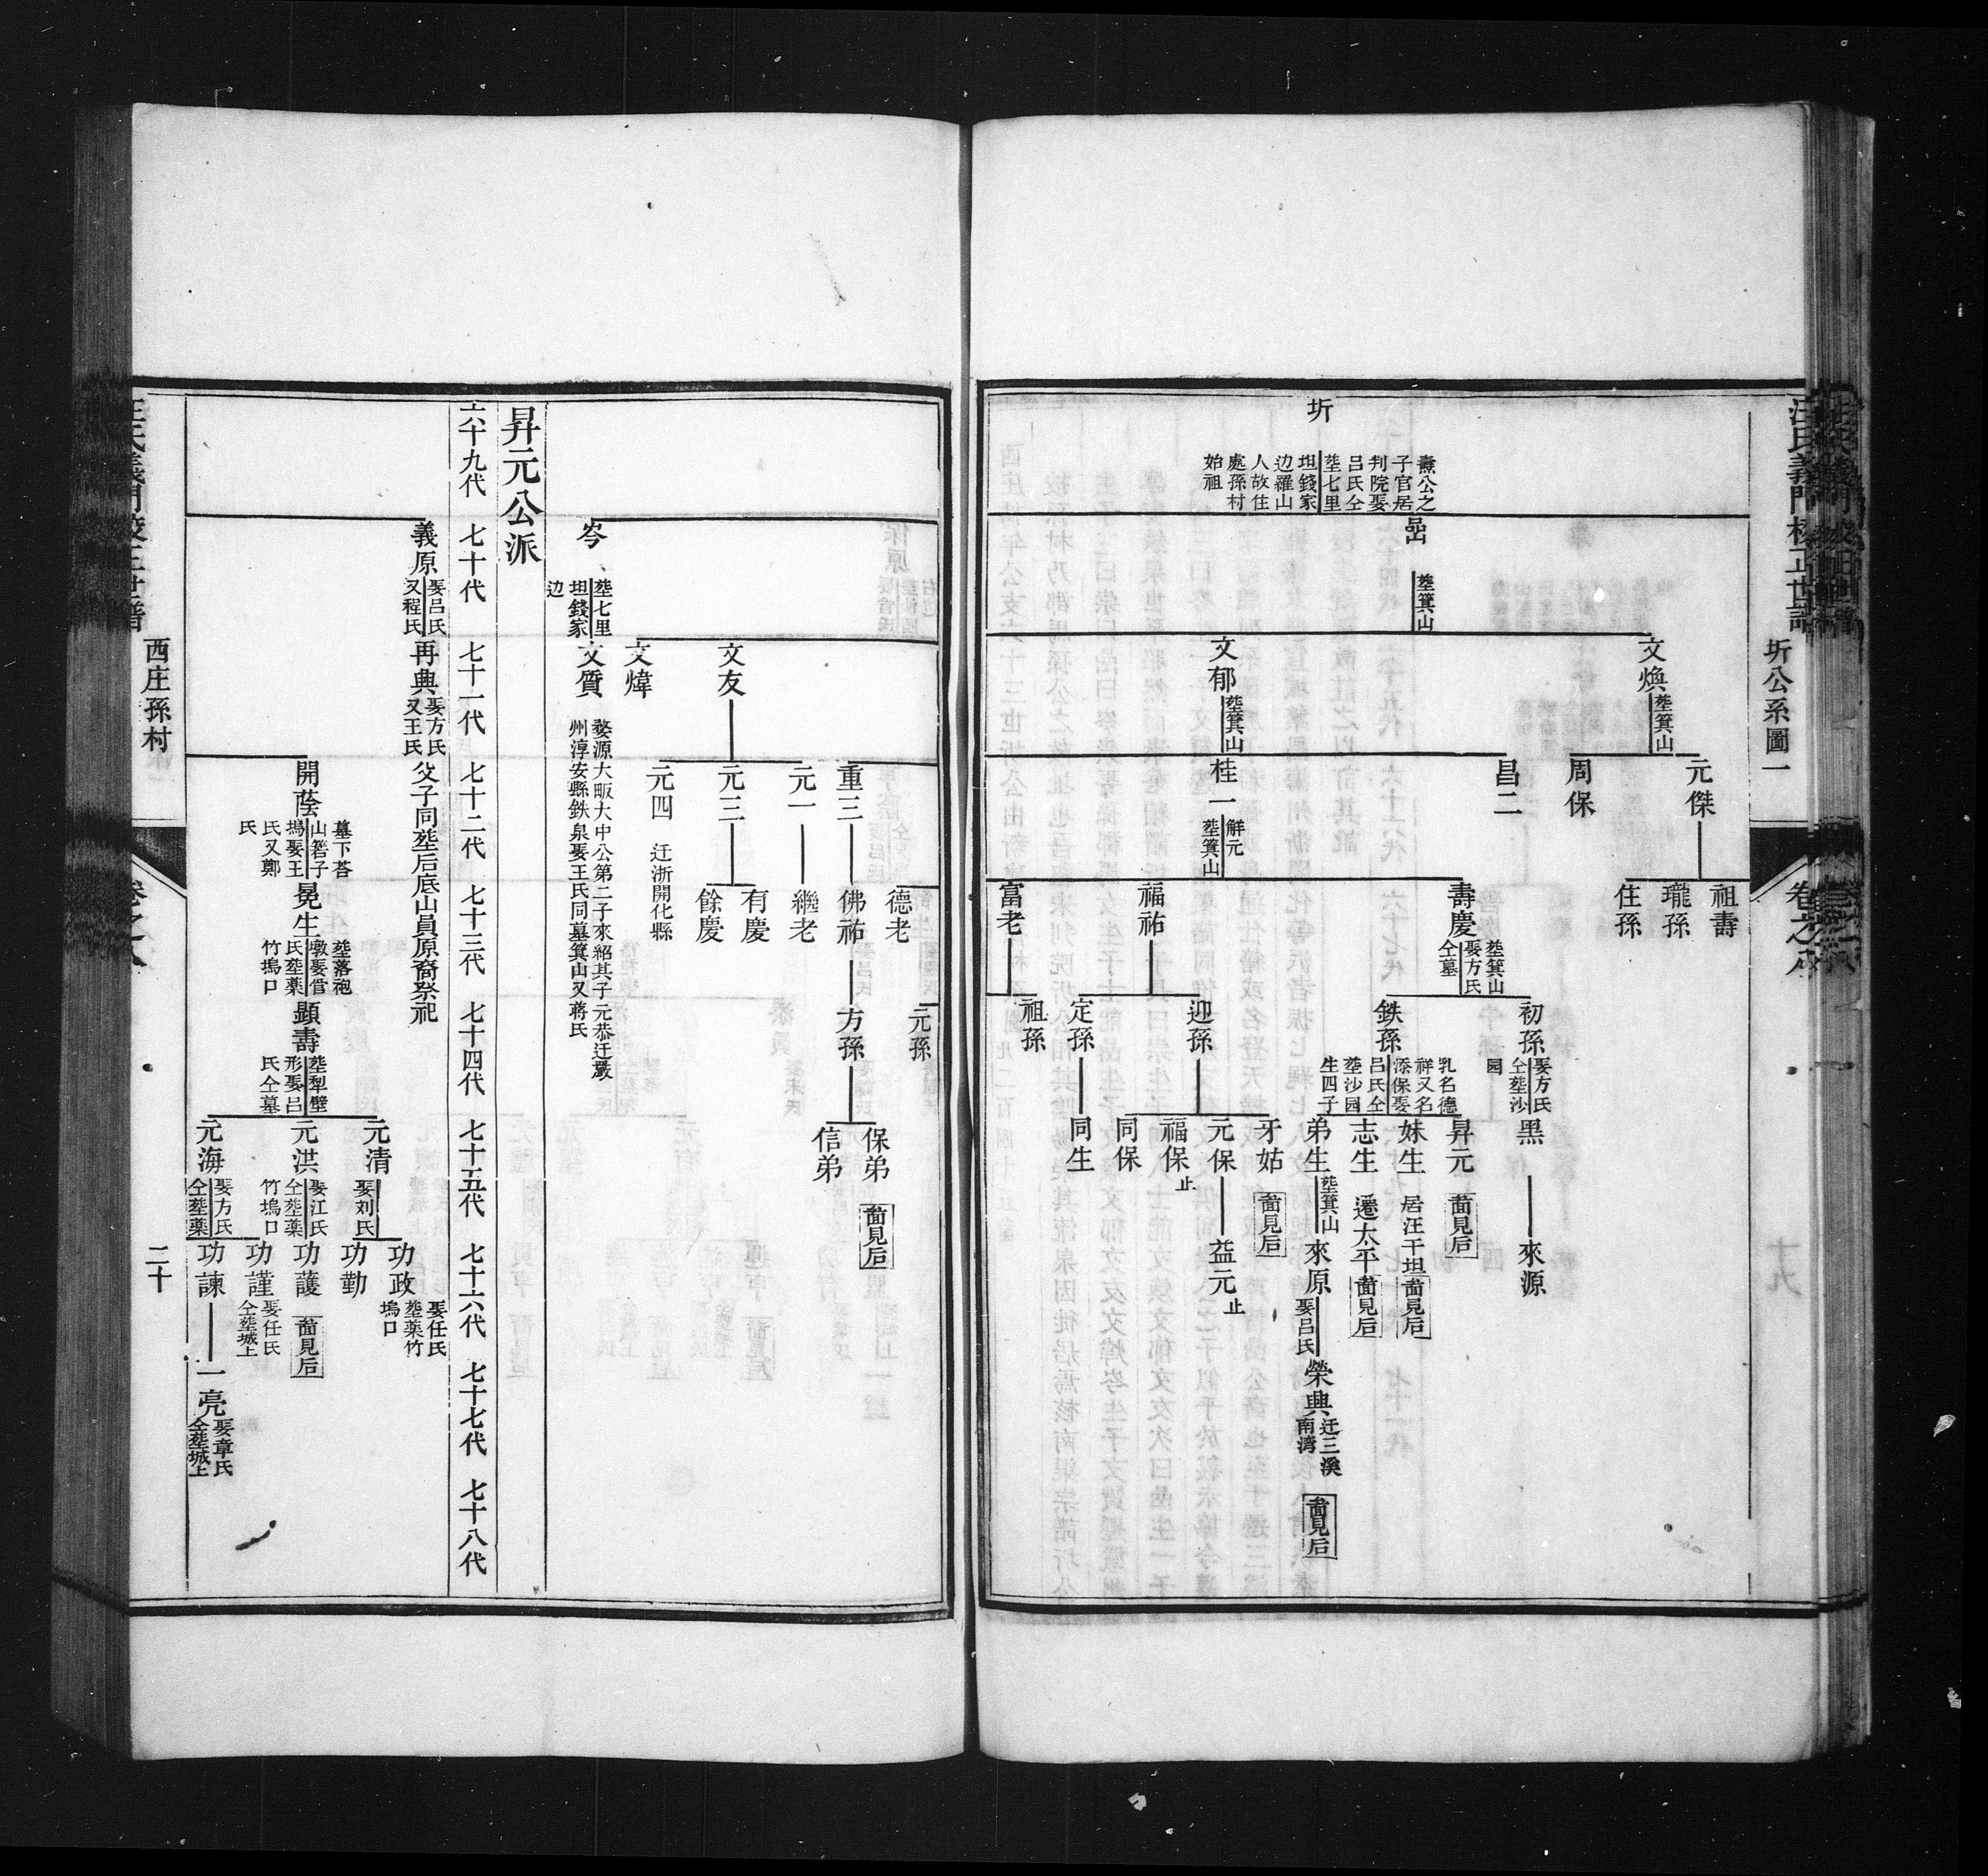 汪氏義門校正世譜
圻公系圖一
卷之八
圻
燾公之
子官居
判院娶
呂氏仝
塟七里
坦錢家
边羅山
人故住
處孫村
始祖
嵒
塟箕山
文煥
塟箕山
文郁
塟箕山
元傑
周保
昌二
桂一
解元
塟箕山
祖壽
瓏孫
住孫
壽慶
塟箕山
娶方氏
仝墓
福祐
富老
初孫
娶方氏
仝塟沙
园
鉄孫
乳名德
祥又名
添保娶
呂氏仝
塟沙园
生四子
迎孫
定孫
祖孫
黑
昇元
圖見后
妹生
居汪干坦
圖見后
志生
遷太平
圖見后
弟生
塟箕山
牙姑
圖見后
元保
福保
止
同保
同生
來源
來原
娶呂氏
益元
止
榮興
迁三溪
南湾
圖見后
岑
塟七里
坦錢家
边
文友
文煒
文質
婺源大畈大中公第二子來紹其子元恭迁嚴
州淳安縣鉄泉娶王氏同墓箕山又蔣氏
重三
元一
元三
元四
迁浙開化縣
德老
佛祐
繼老
有慶
餘慶
元孫
方孫
保弟
圖見后
信弟
昇元公派
六十九代
七十代
七十一代
七十二代
七十三代
七十四代
七十五代
七十六代
七十七代
七十八代
義原
娶呂氏
又程氏
再興
娶方氏
又王氏
父子同塟后底山員原裔祭祀
開蔭
墓下荅
山箬子
塢娶王
氏又鄭
氏
晃生
塟落袍
墩娶曾
氏塟藥
竹塢口
顕壽
塟犁壁
形娶呂
氏仝墓
元清
娶刘氏
元洪
娶江氏
仝塟藥
竹塢口
元海
娶方氏
仝塟藥
功政
娶任氏
塟藥竹
塢口
功勤
功護
圖見后
功謹
娶任氏
仝塟城上
功諫
一亮
娶章氏
仝塟城上
西庄孫村
二十